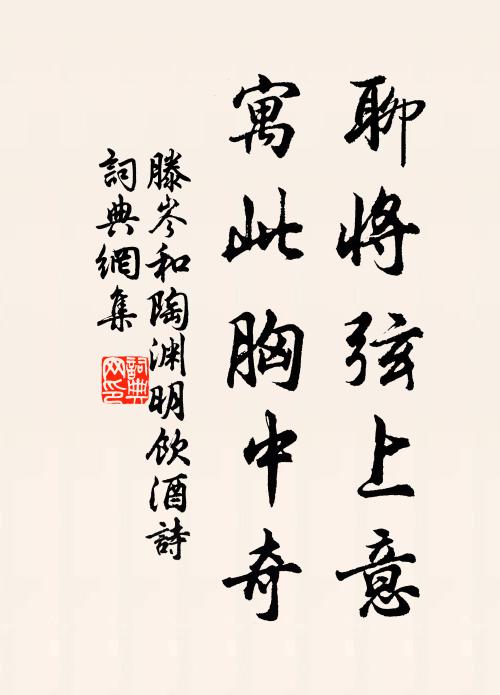 聊將弦上意
寓此胸中奇
滕岑和陶渊明飲酒詩
詞典網集
詞典
网印